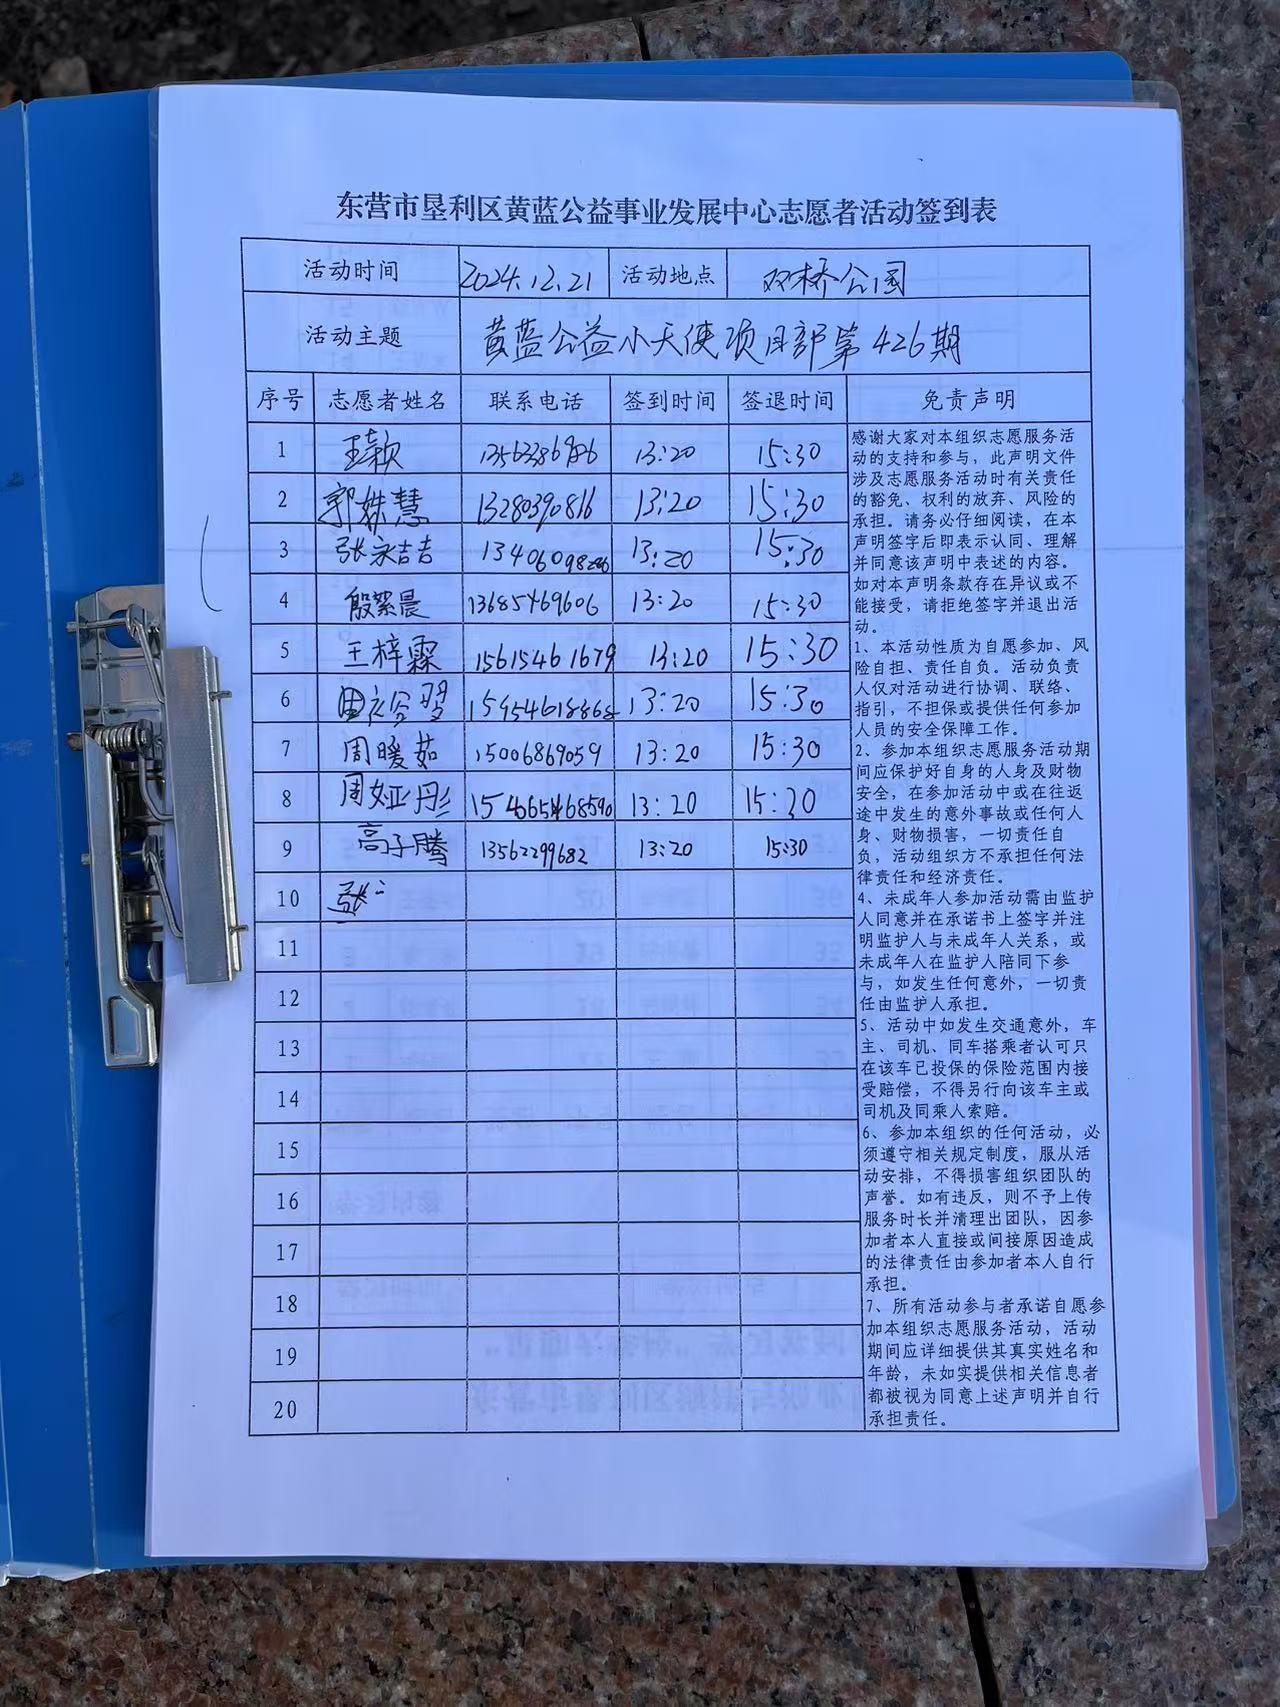 东营市垦利区黄蓝公益事业发展中心志愿者活动签到表
活动时间 2024.12.21 活动地点 双桥公园
活动主题 黄蓝公益小天使项目部第426期
序号 志愿者姓名 联系电话 签到时间 签退时间 免责声明
1 王颖 13:20 15:30
2 郭姝慧 13280390816 13:20 15:30
3 张永吉 13:20 15:30
4 殷絮晨 13685469606 13:20 15:30
5 王梓霖 15615461679 13:20 15:30
6 15954618868 13:20 15:30
7 周暖茹 15006869059 13:20 15:30
8 周娅彤 13:20 15:30
9 高子腾 13562299682 13:20 15:30
10 张
11
12
13
14
15
16
17
18
19
20
感谢大家对本组织志愿服务活
动的支持和参与，此声明文件
涉及志愿服务活动时有关责任
的豁免、权利的放弃、风险的
承担。请务必仔细阅读，在本
声明签字后即表示认同、理解
并同意该声明中表述的内容。
如对本声明条款存在异议或不
能接受，请拒绝签字并退出活
动。
1、本活动性质为自愿参加、风
险自担、责任自负。活动负责
人仅对活动进行协调、联络、
指引，不担保或提供任何参加
人员的安全保障工作。
2、参加本组织志愿服务活动期
间应保护好自身的人身及财物
安全，在参加活动中或在往返
途中发生的意外事故或任何人
身、财物损害，一切责任自
负，活动组织方不承担任何法
律责任和经济责任。
4、未成年人参加活动需由监护
人同意并在承诺书上签字并注
明监护人与未成年人关系，或
未成年人在监护人陪同下参
与，如发生任何意外，一切责
任由监护人承担。
5、活动中如发生交通意外，车
主、司机、同车搭乘者认可只
在该车已投保的保险范围内接
受赔偿，不得另行向该车主或
司机及同乘人索赔。
6、参加本组织的任何活动，必
须遵守相关规定制度，服从活
动安排，不得损害组织团队的
声誉。如有违反，则不予上传
服务时长并清理出团队，因参
加者本人直接或间接原因造成
的法律责任由参加者本人自行
承担。
7、所有活动参与者承诺自愿参
加本组织志愿服务活动，活动
期间应详细提供其真实姓名和
年龄，未如实提供相关信息者
都被视为同意上述声明并自行
承担责任。